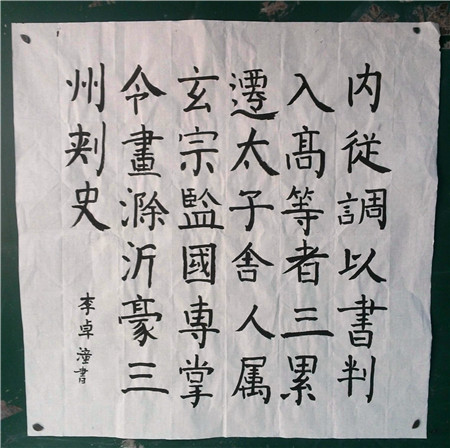 内從調以書判
入髙等者三累
遷太子舍人属
玄宗監國專掌
令畫滁沂豪三
州刾史
李卓潼書